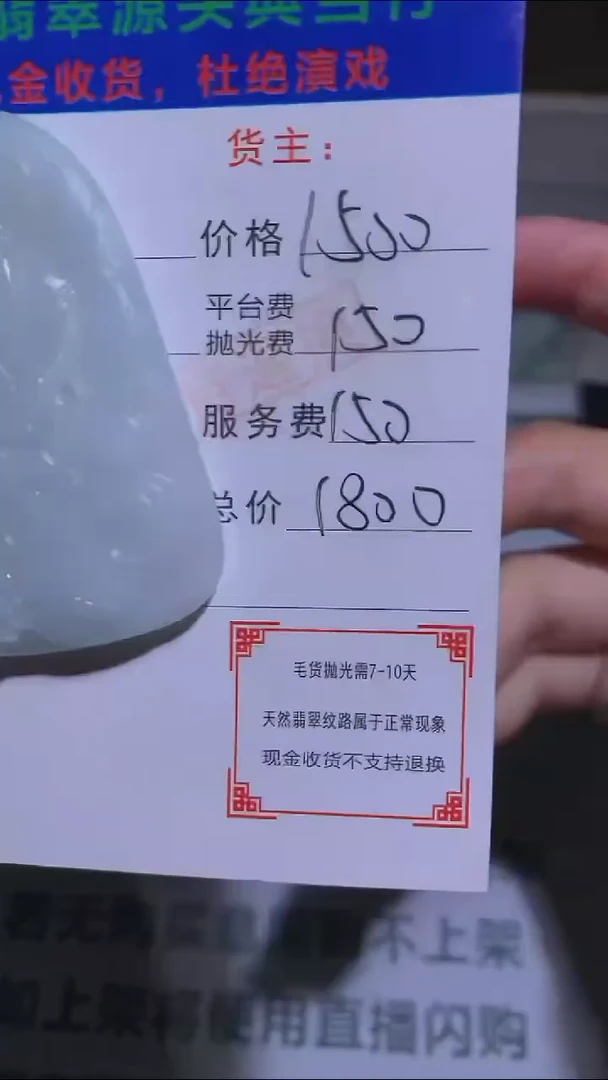 翡翠源头典当行
金收货，杜绝演戏
货主：
价格 1500
平台费
抛光费 150
服务费 150
总价 1800
毛货抛光需7-10天
天然翡翠纹路属于正常现象
现金收货不支持退换
不上架
如上架将使用直播闪购